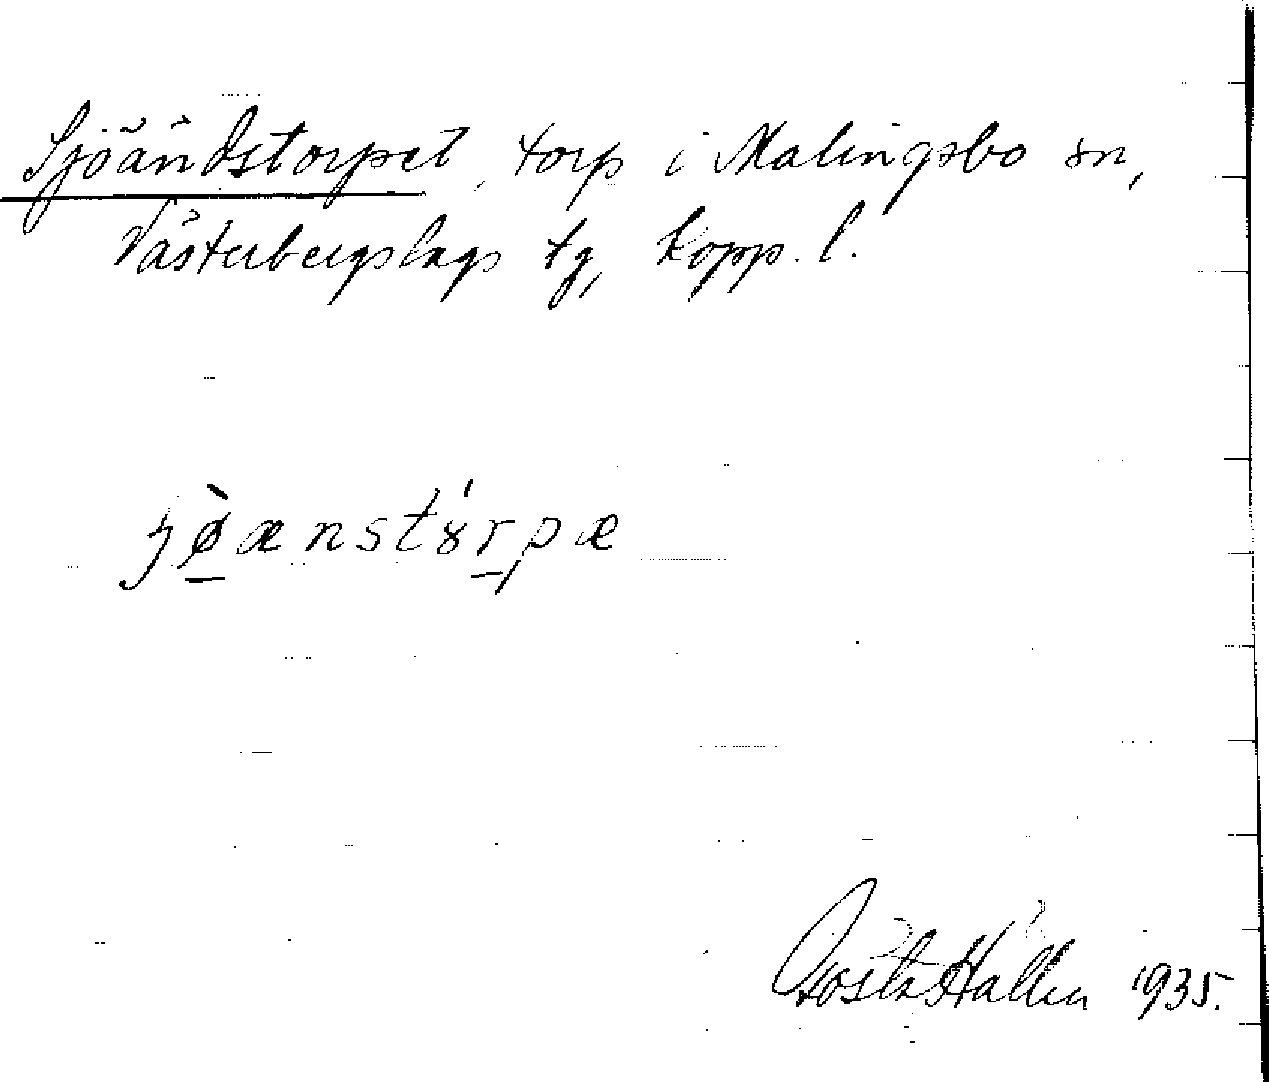 Sjöändstorpet, torp i Malingsbo sn,
Västerbergslags tg, Kopp. l.
Gösta Hallén 1935.